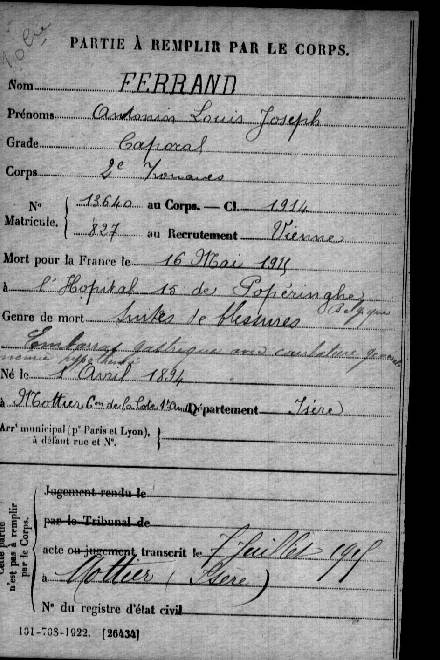 PARTIE À REMPLIR PAR LE CORPS.
Nom FERRAND
Prénoms Antonin Louis Joseph
Grade Caporal
Corps 2e Zouaves
N° Matricule. 13640 au Corps. — Cl. 1914
827 au Recrutement Vienne
Mort pour la France le 16 Mai 1915
à l'Hopital 15 de Popéringhe
Belgique
Genre de mort Suites de blessures
Embarras gastrique
Né le Avril 1894
à Mottier Con de la Côte St André Département Isère
Arrt municipal (pr Paris et Lyon),
à défaut rue et N°.
Cette partie n'est pas à remplir par le Corps.
Jugement rendu le
par le Tribunal de
acte ou jugement transcrit le 7 Juillet 1915
à Mottier (Isère)
N° du registre d'état civil
101-708-1922. [26434]